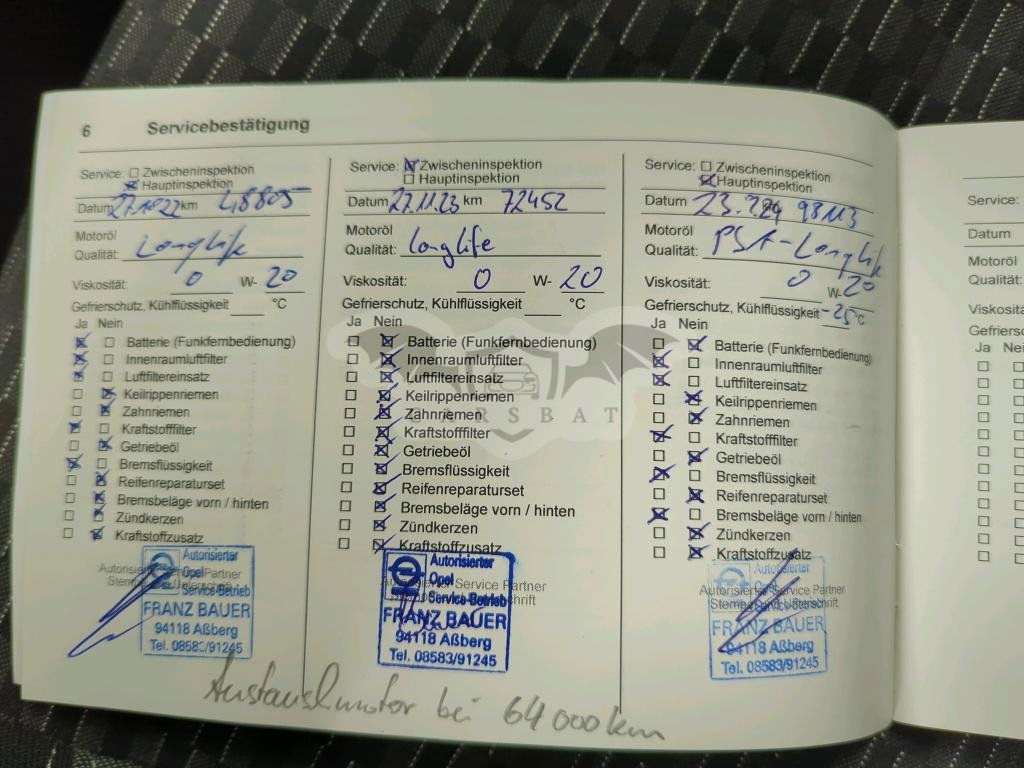 6 Servicebestätigung
Service: Zwischeninspektion
Hauptinspektion
Datum 27.10.22 km 48805
Motoröl
Qualität: Longlife
Viskosität: 0 W- 20
Gefrierschutz, Kühlflüssigkeit °C
Ja Nein
Batterie (Funkfernbedienung)
Innenraumluftfilter
Luftfiltereinsatz
Keilrippenriemen
Zahnriemen
Kraftstofffilter
Getriebeöl
Bremsflüssigkeit
Reifenreparaturset
Bremsbeläge vorn / hinten
Zündkerzen
Kraftstoffzusatz
Autorisierter
Opel
Service-Betrieb
FRANZ BAUER
94118 Aßberg
Tel. 08583/91245
Service: Zwischeninspektion
Hauptinspektion
Datum 27.11.23 km 72452
Motoröl
Qualität: longlife
Viskosität: 0 W- 20
Gefrierschutz, Kühlflüssigkeit °C
Ja Nein
Batterie (Funkfernbedienung)
Innenraumluftfilter
Luftfiltereinsatz
Keilrippenriemen
Zahnriemen
Kraftstofffilter
Getriebeöl
Bremsflüssigkeit
Reifenreparaturset
Bremsbeläge vorn / hinten
Zündkerzen
Kraftstoffzusatz
Autorisierter Opel Service Partner
Stempel / Unterschrift
Autorisierter
Opel
Service-Betrieb
FRANZ BAUER
94118 Aßberg
Tel. 08583/91245
Service: Zwischeninspektion
Hauptinspektion
Datum 98113
Motoröl
Qualität: PSA-Longlife
Viskosität: 0 W- 20
Gefrierschutz, Kühlflüssigkeit -25 °C
Ja Nein
Batterie (Funkfernbedienung)
Innenraumluftfilter
Luftfiltereinsatz
Keilrippenriemen
Zahnriemen
Kraftstofffilter
Getriebeöl
Bremsflüssigkeit
Reifenreparaturset
Bremsbeläge vorn / hinten
Zündkerzen
Kraftstoffzusatz
Autorisierter
Opel
Service-Betrieb
FRANZ BAUER
94118 Aßberg
Tel. 08583/91245
Austauschmotor bei 64000km
CARSBAT
Service:
Datum
Motoröl
Qualität:
Viskosität:
Ja